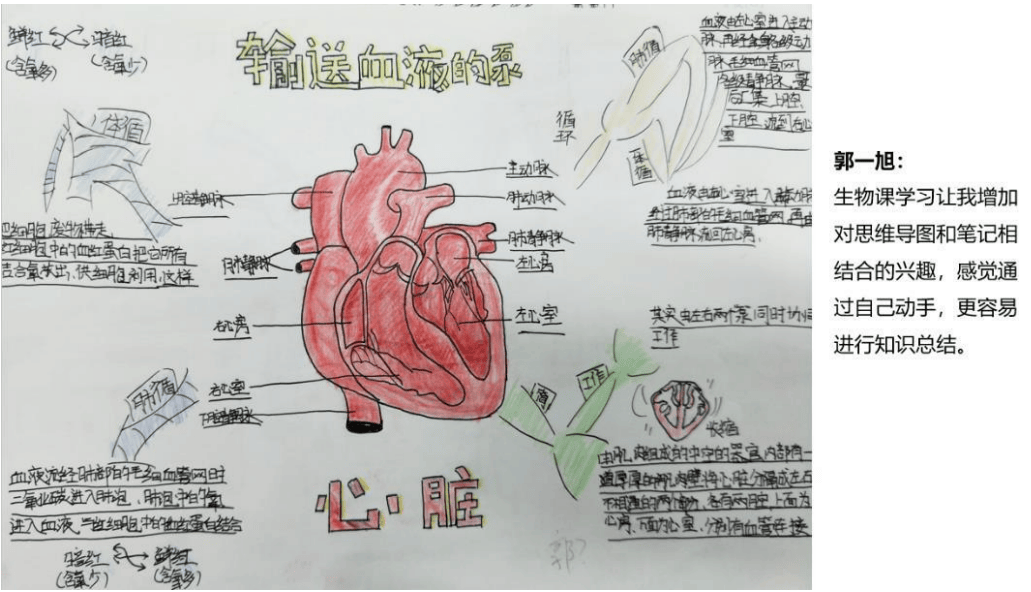 输送血液的泵
鲜红 暗红
(含氧多) (含氧少)
体循
上腔静脉
肺静脉
右心房
右心室
下腔静脉
主动脉
肺动脉
肺静脉
左心房
左心室
把细胞废物带走
红细胞中的血红蛋白把它所有
结合氧放出,供细胞利用,这样
肺循
血液流经肺部的毛细血管网时
二氧化碳进入肺泡,肺泡中的氧
进入血液,与红细胞中的血红蛋白结合
暗红 鲜红
(含氧少) (含氧多)
心·脏
循
环
肺循
体循
血液由左心室进入主动
脉,再经全身各级动
脉毛细血管网
各级静脉,最
后汇集上腔
下腔 流到右心
血液由右心室进入
肺静脉流回左心房
其实由左右两个泵同时协同
工作
工作
由肌肉组成的中空的器官,内部有一
道厚厚的肌肉壁将心脏分隔成左右
不相通的两个部分,各有两腔,上面为
心房,下面为心室,分别有血管连接
郭一旭:
生物课学习让我增加
对思维导图和笔记相
结合的兴趣,感觉通
过自己动手,更容易
进行知识总结。